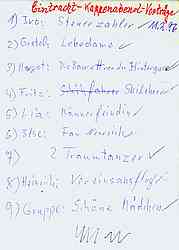 Eintracht-Kappenabend-Vorträge
1) Ivo: Steuerzahler
2) Gretel: Lebedame
3) Margot: Die Dame im Hintergrund
4) Fritz: Skifahrer
5) Lia: Männerfeindin
6) Ilse: Frau Neureich
7) 2 Traumtänzer
8) Heinrich: Vereinsausflug
9) Gruppe: Schöne Mädchen